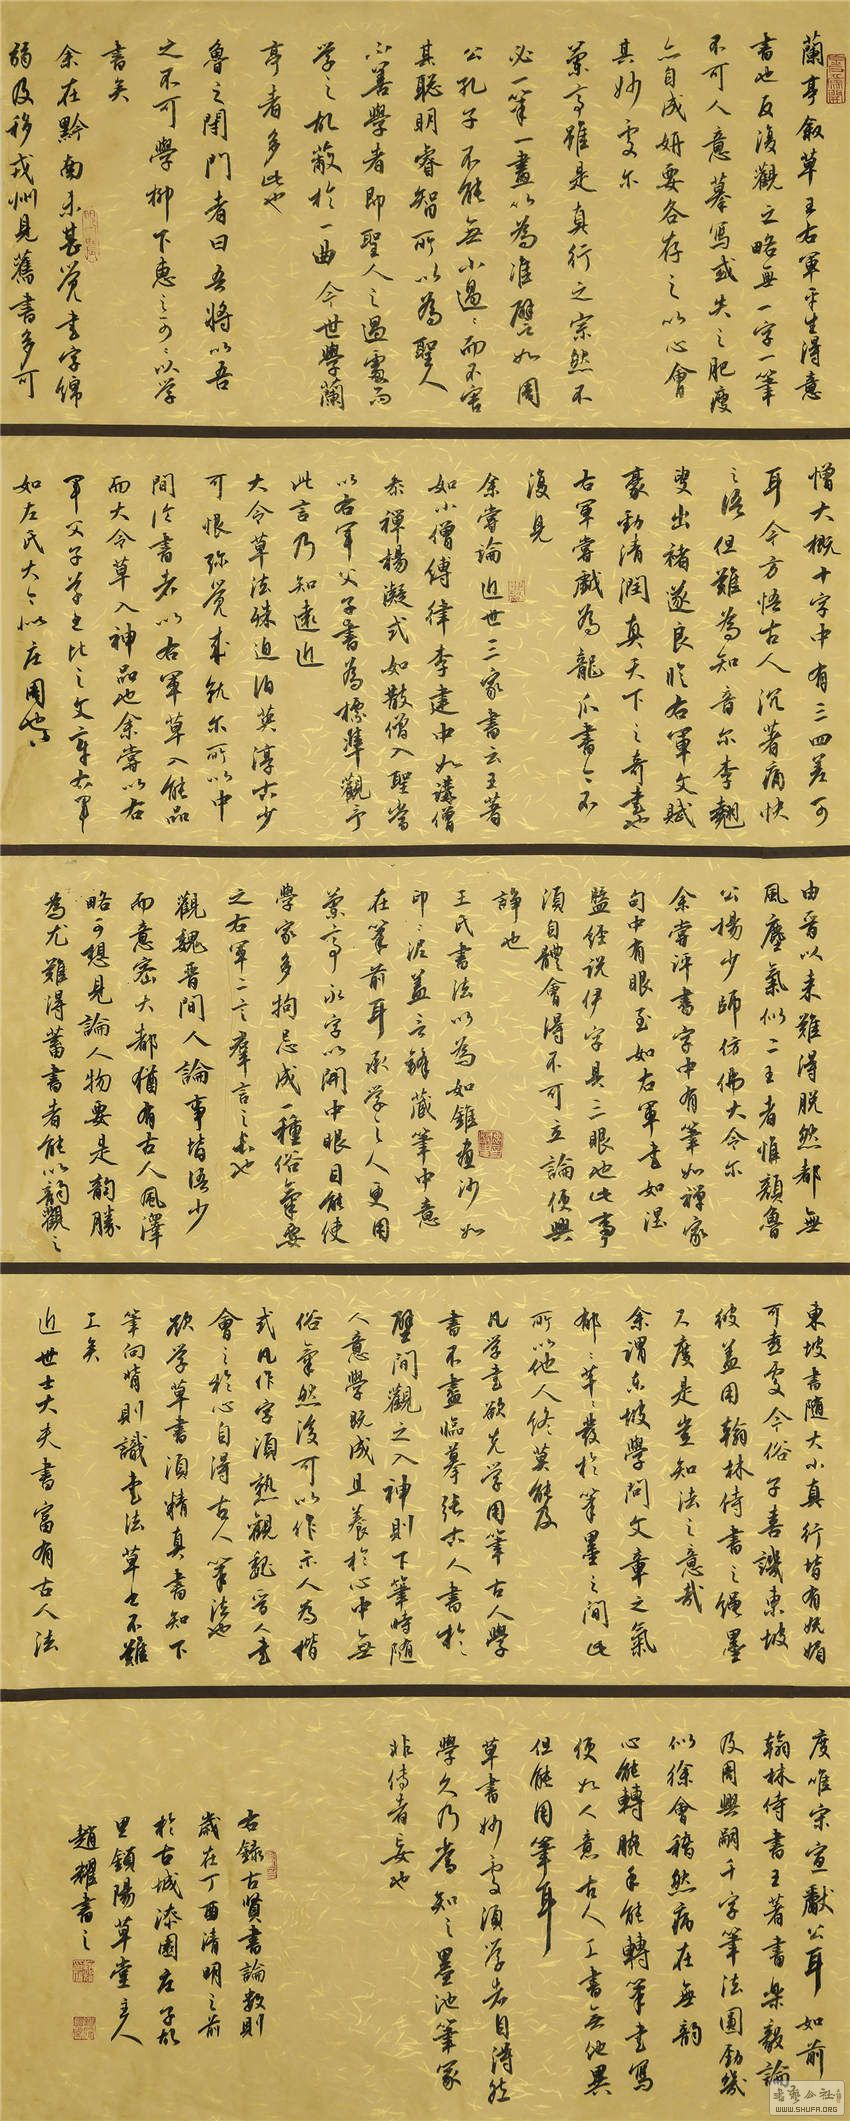 蘭亭敘草王右軍平生得意
書也反復觀之略無一字一筆
不可人意摹寫或失之肥瘦
亦自成妍要各存之以心會
其妙處尔
蘭亭雖是真行之宗然不
必一筆一畫以為准譬如周
公孔子不能無小過過而不害
其聰明睿智所以為聖人
不善學者即聖人之過處而
學之故蔽於一曲今世學蘭
亭者多此也
魯之閉門者曰吾將以吾
之不可學柳下惠之可可以學
書矣
余在黔南未甚覺書字綿
弱及移戎州見舊書多可
憎大概十字中有三四差可
耳今方悟古人沉著痛快
之語但難為知音尔李翹
叟出褚遂良臨右軍文賦
豪勁清潤真天下之奇書也
右軍嘗戲為龍爪書今不
復見
余嘗論近世三家書云王著
如小僧縛律李建中如講僧
參禪楊凝式如散僧入聖當
以右軍父子書為標準觀予
此言乃知遠近
大令草法殊迫伯英淳古少
可恨弥覺成就尔所以中
間論書者以右軍草入能品
而大令草入神品也余嘗以右
軍父子草書比之文章右軍
如左氏大令似庄周也
由晉以来難得脱然都無
風塵氣似二王者惟顏魯
公楊少師仿佛大令尔
余嘗評書字中有筆如禪家
句中有眼至如右軍書如涅
盤经说伊字具三眼也此事
須自體會得不可立論便興
諍也
王氏書法以為如錐畫沙如
印印泥蓋言鋒藏筆中意
在筆前耳承学之人更用
蘭亭永字以開中眼目能使
學家多拘忌成一種俗氣要
之右軍二言群言之長也
觀魏晉間人論事皆語少
而意密大都猶有古人風澤
略可想見論人物要是韵勝
為尤難得蓄書者能以韵觀之
東坡書随大小真行皆有妩媚
可喜處今俗子喜譏東坡
彼蓋用翰林侍書之繩墨
尺度是豈知法之意哉
余謂東坡學問文章之氣
郁郁芊芊發於筆墨之間此
所以他人終莫能及
凡学書欲先学用筆古人學
書不盡临摹張古人書於
壁間觀之入神則下筆時随
人意學既成且養於心中無
俗氣然後可以作示人為楷
式凡作字須熟觀魏晉人書
會之於心自得古人筆法也
欲学草書須精真書知下
筆向背則識書法草書不難
工矣
近世士大夫書富有古人法
度唯宋宣獻公耳如前
翰林侍書王著書樂毅論
及周興嗣千字筆法圓勁幾
似徐會稽然病在無韵
心能轉腕手能轉筆書寫
便如人意古人工書無他異
但能用筆耳
草書妙處須学者自得然
學久乃當知之墨池筆冢
非傳者妄也
右錄古賢書論数則
歲在丁酉清明之前
於古城漆園庄子故
里鎮陽草堂主人
趙耀書之
WWW.SHUFA.ORG